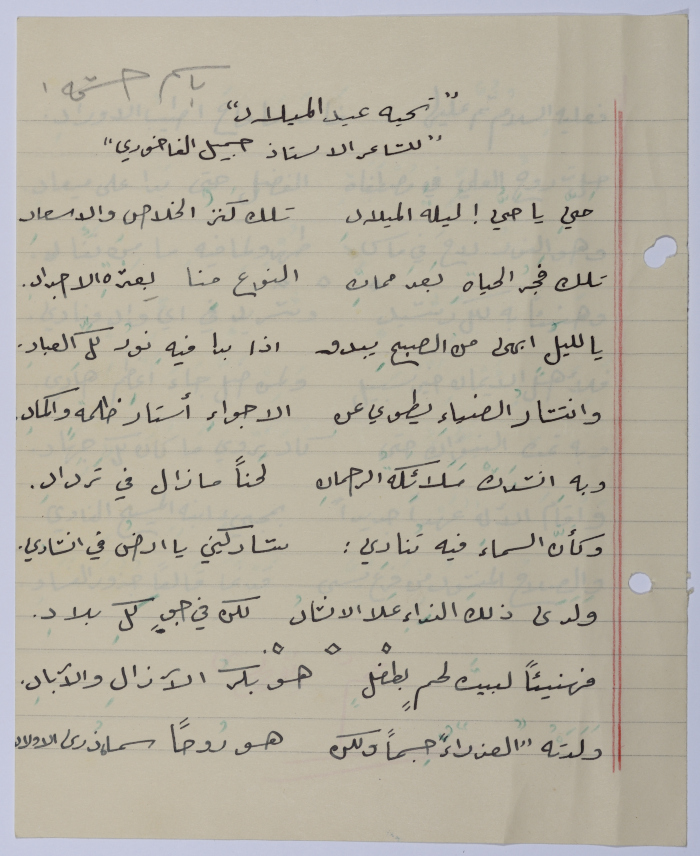 باسم حشمه
"تحيه عيد الميلاد"
"للشاعر الاستاذ جميل الفاخوري"
حيّ يا حي! ليله الميلاد تلك كنز الخلاص والاسعاد
تلك فجر الحياه بعد ممات النوع منا بعتره الاجداد.
يا لليل ابهى من الصبح يبدو اذا بدا فيه نور كلّ العباد.
وانتشار الضياء يطوي عن الاجواء أستار ظلمه
وبه انشدت ملائكه الرحمان لحناً ما زال في ترداد.
وكأن السماء فيه تنادي: شاركيني يا ارض في انشادي.
ولدى ذلك النداء علا الانشاد لكن في جوِّ كل بلاد.
فهنيئاً لبيت لحمٍ بطفلٍ هو بكر الآزال والآباد.
ولدته "العذراء" جسماً ولكن هو روحاً الاولاد